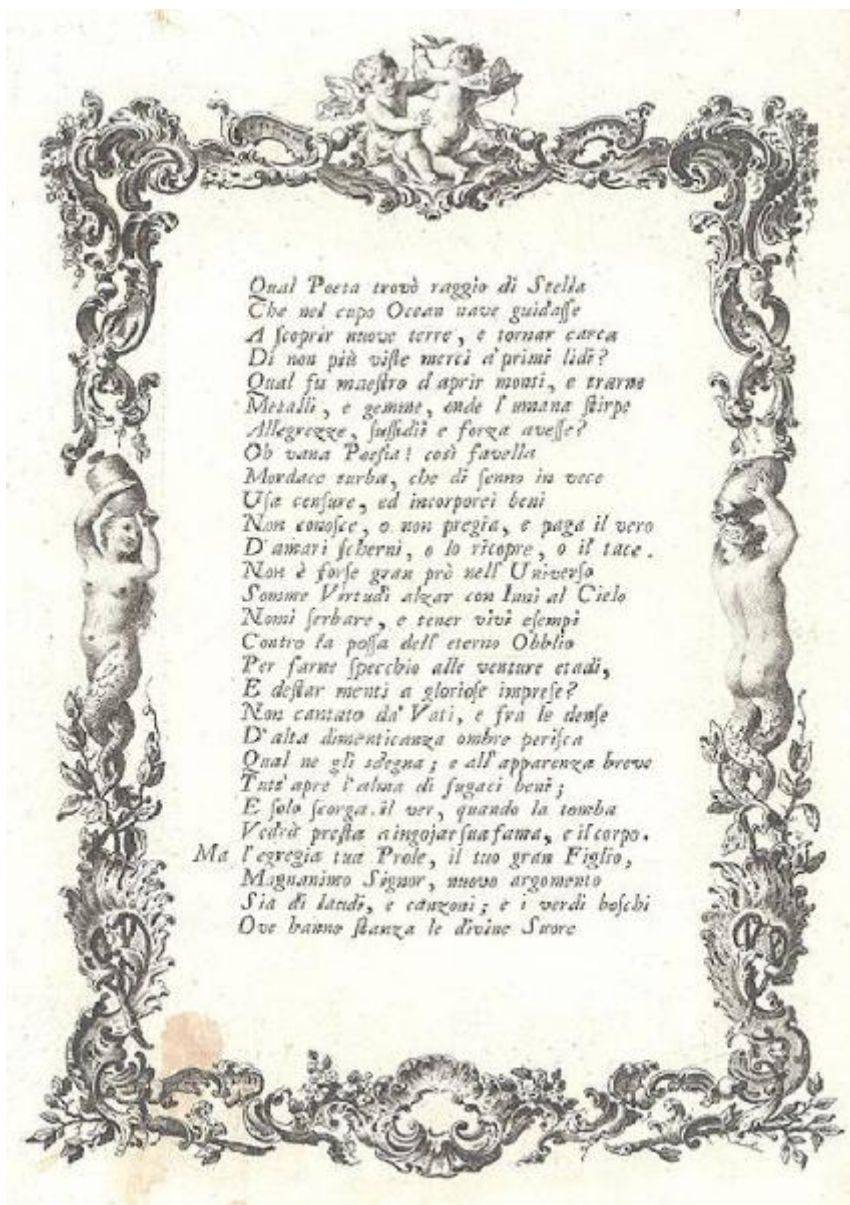 Qual Poeta trovò raggio di Stella
Che nel cupo Ocean nave guidaſſe
A ſcoprir nuove terre, e tornar carca
Di non più viſte merci a' primi lidi?
Qual fu maeſtro d'aprir monti, e trarne
Metalli, e gemme, onde l'umana ſtirpe
Allegrezze, ſuſſidii e forza aveſſe?
Oh vana Poeſia! così favella
Mordace turba, che di ſenno in vece
Uſa cenſure, ed incorporei beni
Non conoſce, o non pregia, e paga il vero
D'amari ſcherni, o lo ricopre, o il tace.
Non è forſe gran prò nell'Univerſo
Somme Virtudi alzar con Inni al Cielo
Nomi ſerbare, e tener vivi eſempi
Contro la poſſa dell'eterno Obblio
Per farne ſpecchio alle venture etadi,
E deſtar menti a glorioſe impreſe?
Non cantato da' Vati, e fra le denſe
D'alta dimenticanza ombre periſca
Qual ne gli sdegna; e all'apparenza breve
Tutt'apre l'alma di fugaci beni;
E ſolo ſcorga il ver, quando la tomba
Vedrà preſta a ingojar ſua fama, e il corpo.
Ma l'egregia tua Prole, il tuo gran Figlio,
Magnanimo Signor, nuovo argomento
Sia di laudi, e canzoni; e i verdi boſchi
Ove hanno ſtanza le divine Suore